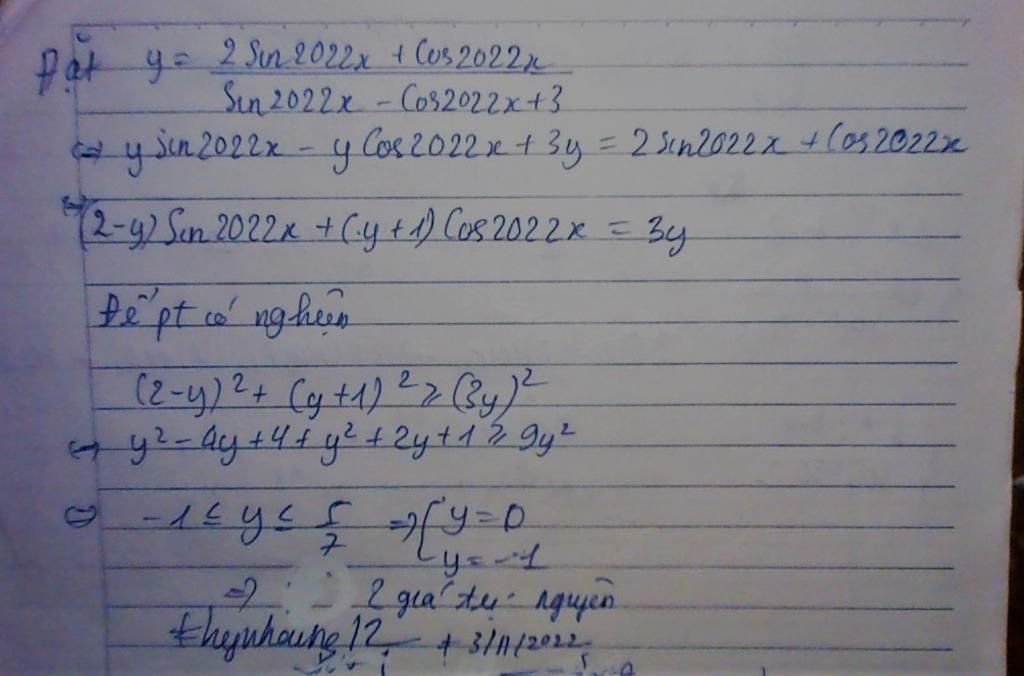 Đặt y = (2 Sin2022x + Cos2022x) / (Sin2022x - Cos2022x + 3)
⇔ y sin2022x - y Cos2022x + 3y = 2 sin2022x + Cos2022x
⇔ (2-y) Sin2022x + (y+1) Cos2022x = 3y
Để pt có nghiệm
(2-y)² + (y+1)² ≥ (3y)²
⇔ y² - 4y + 4 + y² + 2y + 1 ≥ 9y²
⇔ -1 ≤ y ≤ 5/7 ⇒ [ y = 0
y = -1
⇒ 2 giá trị nguyên
+ 3/11/2022